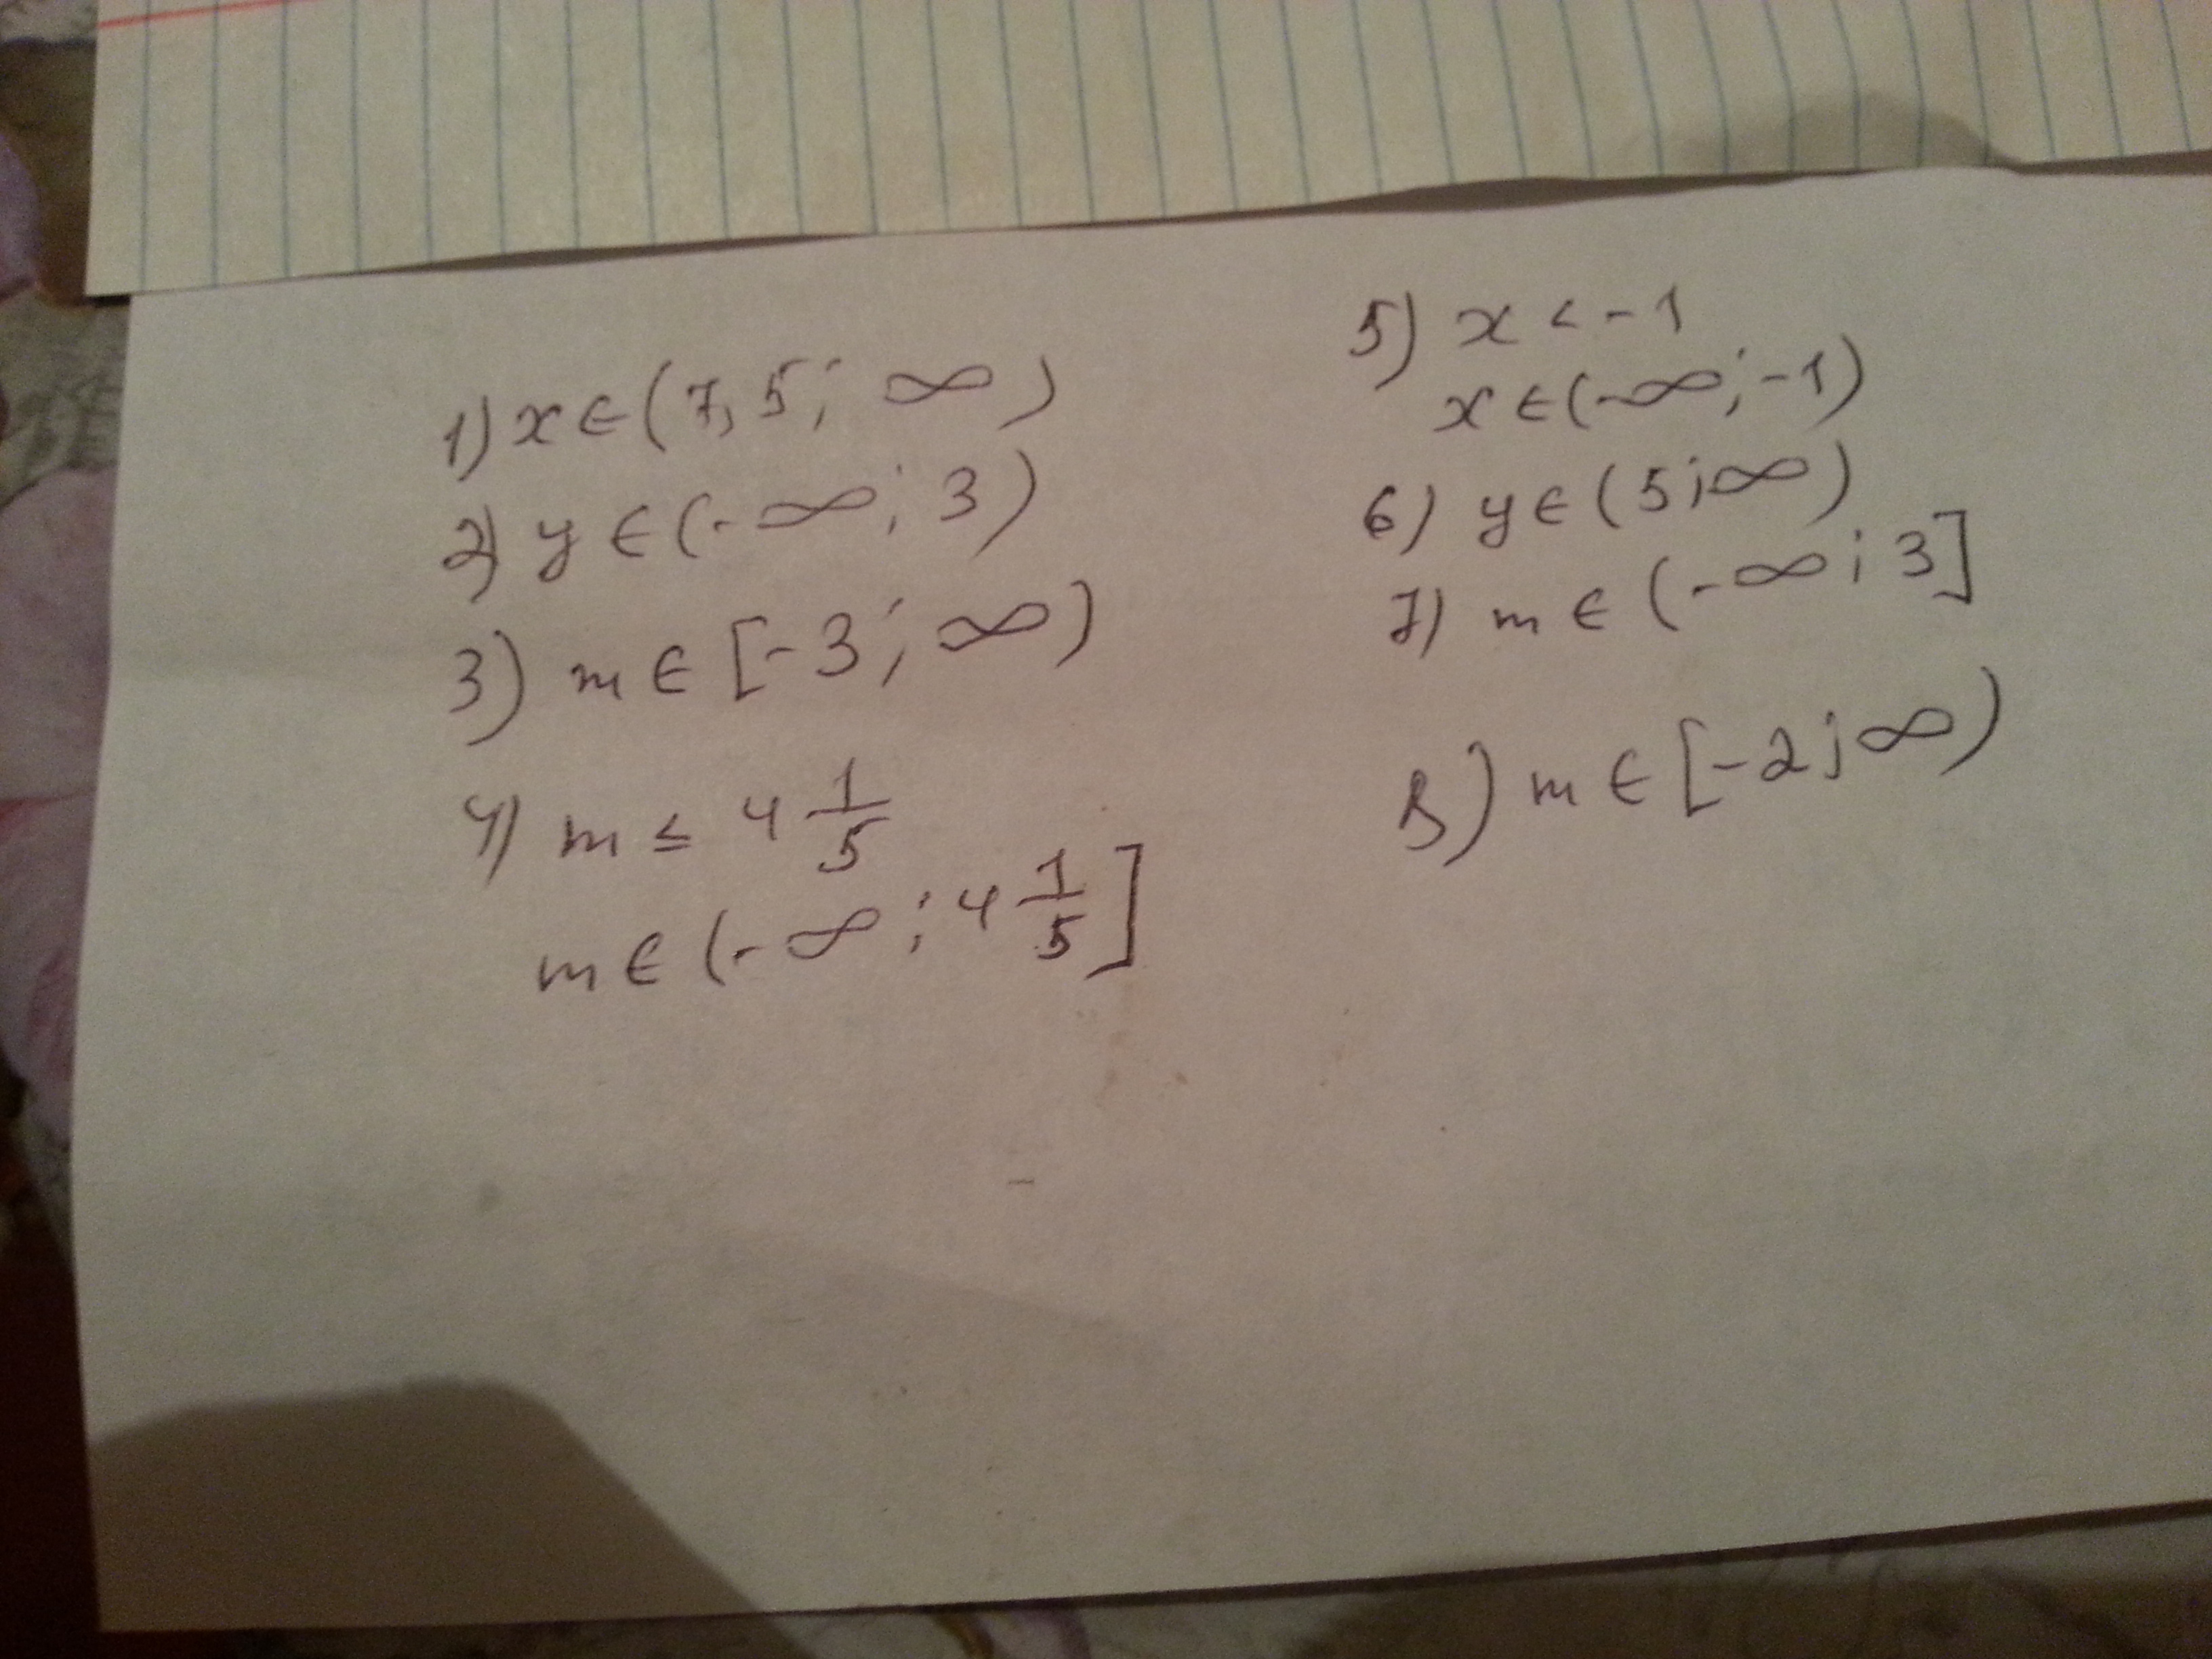 1) x ∈ (7,5; ∞)
2) y ∈ (-∞; 3)
3) m ∈ [-3; ∞)
4) m ≤ 4 1/5
m ∈ (-∞; 4 1/5]
5) x < -1
x ∈ (-∞; -1)
6) y ∈ (5; ∞)
7) m ∈ (-∞; 3]
8) m ∈ [-2; ∞)